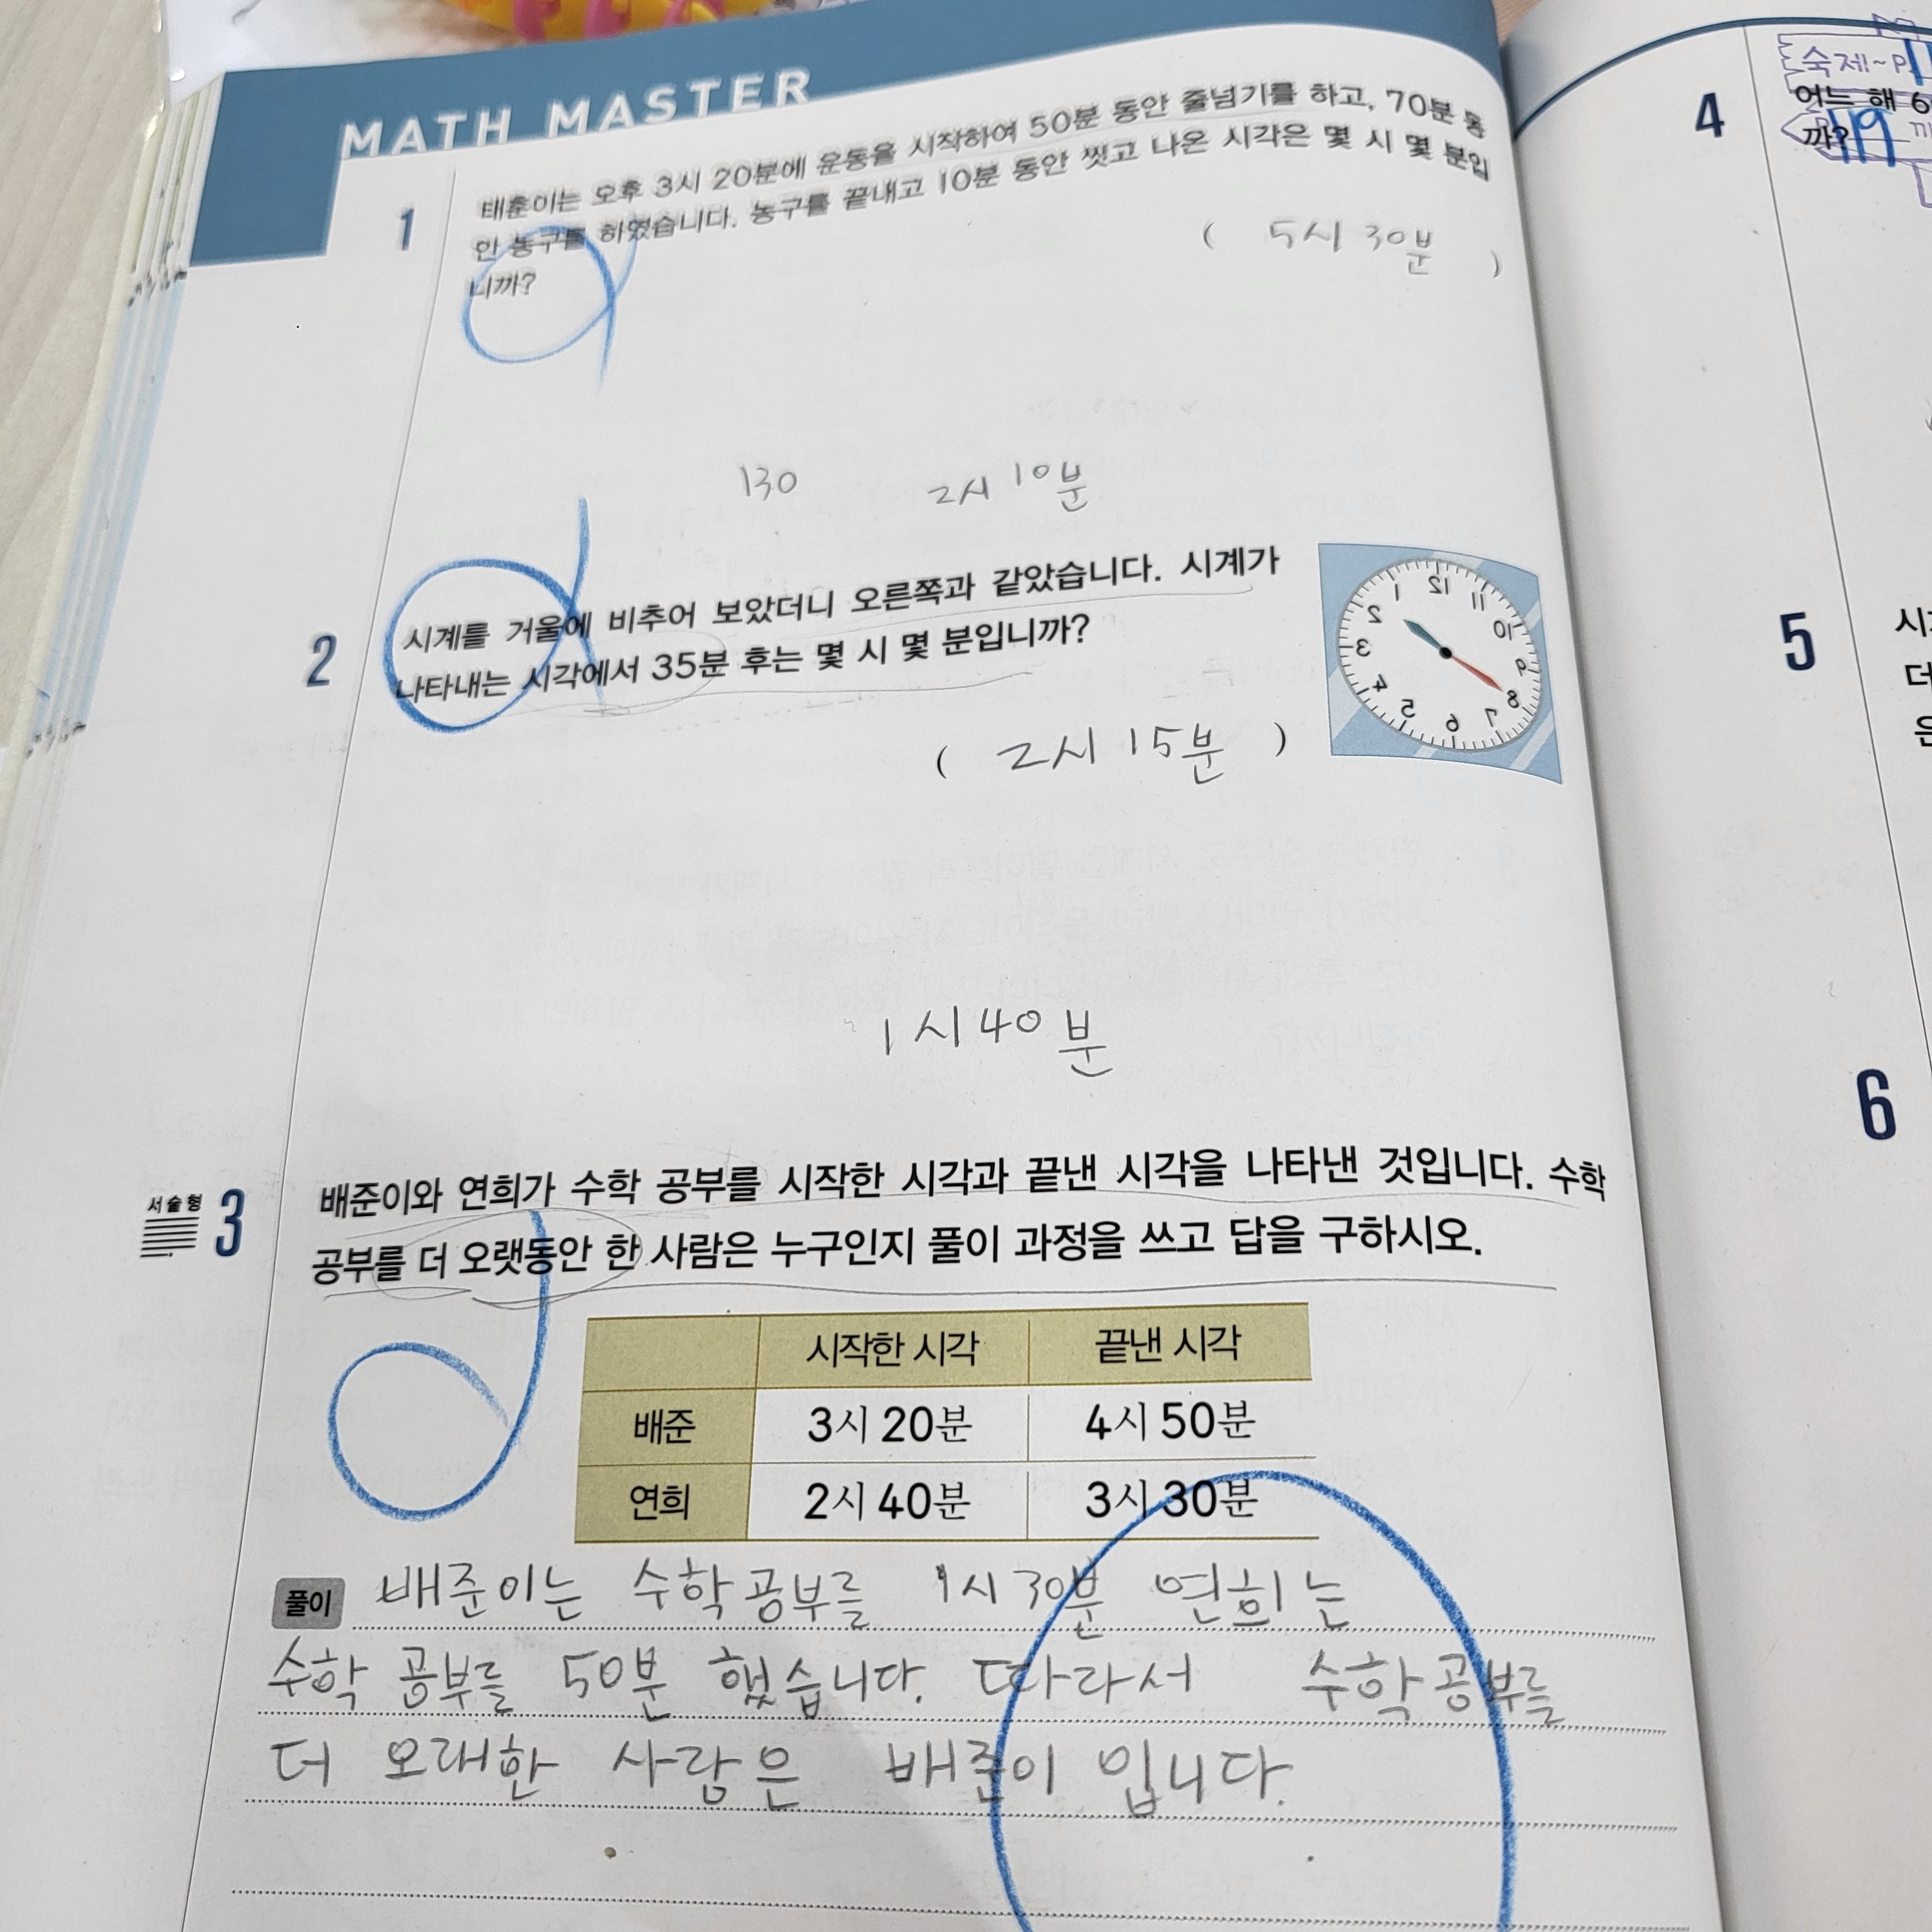 MATH MASTER
1
태훈이는 오후 3시 20분에 운동을 시작하여 50분 동안 줄넘기를 하고, 70분 동
안 농구를 하였습니다. 농구를 끝내고 10분 동안 씻고 나온 시각은 몇 시 몇 분입
니까?
( 5시 30분 )
130 2시 10분
2
시계를 거울에 비추어 보았더니 오른쪽과 같았습니다. 시계가
나타내는 시각에서 35분 후는 몇 시 몇 분입니까?
12 1 2 3 4 5 6 7 8 9 10 11
( 2시 15분 )
1시 40분
서술형 3
배준이와 연희가 수학 공부를 시작한 시각과 끝낸 시각을 나타낸 것입니다. 수학
공부를 더 오랫동안 한 사람은 누구인지 풀이 과정을 쓰고 답을 구하시오.
시작한 시각 끝낸 시각
배준 3시 20분 4시 50분
연희 2시 40분 3시 30분
풀이 배준이는 수학공부를 1시 30분 연희는
수학 공부를 50분 했습니다. 따라서 수학공부를
더 오래한 사람은 배준이 입니다.
숙제~P.
4
어느 해 6
까?
119
5
시
더
은
6